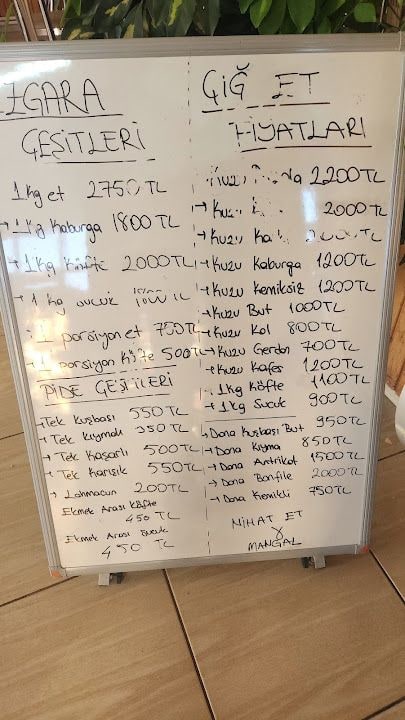 IZGARA
ÇEŞİTLERİ
1kg et 2750 TL
1kg Kaburga 1800 TL
1kg Köfte 2000 TL
1 kg sucuk
1 porsiyon et 750 TL
1 porsiyon Köfte 500 TL
PİDE ÇEŞİTLERİ
Tek Kuşbaşı 550 TL
Tek Kıymalı 550 TL
Tek Kaşarlı 500 TL
Tek Karışık 550 TL
Lahmacun 200 TL
Ekmek Arası Köfte
450 TL
Ekmek Arası Sucuk
450 TL
ÇİĞ ET
FİYATLARI
Kuzu 2200 TL
Kuzu 2000 TL
Kuzu TL
Kuzu Kaburga 1200 TL
Kuzu Kemiksiz 1200 TL
Kuzu But 1000 TL
Kuzu Kol 800 TL
Kuzu Gerdan 700 TL
Kuzu Kafes 1200 TL
1kg Köfte 1100 TL
1kg Sucuk 900 TL
Dana Kuşbaşı But 950 TL
Dana Kıyma 850 TL
Dana Antrikot 1500 TL
Dana Bonfile 2000 TL
Dana Kemikli 750 TL
NİHAT ET
&
MANGAL